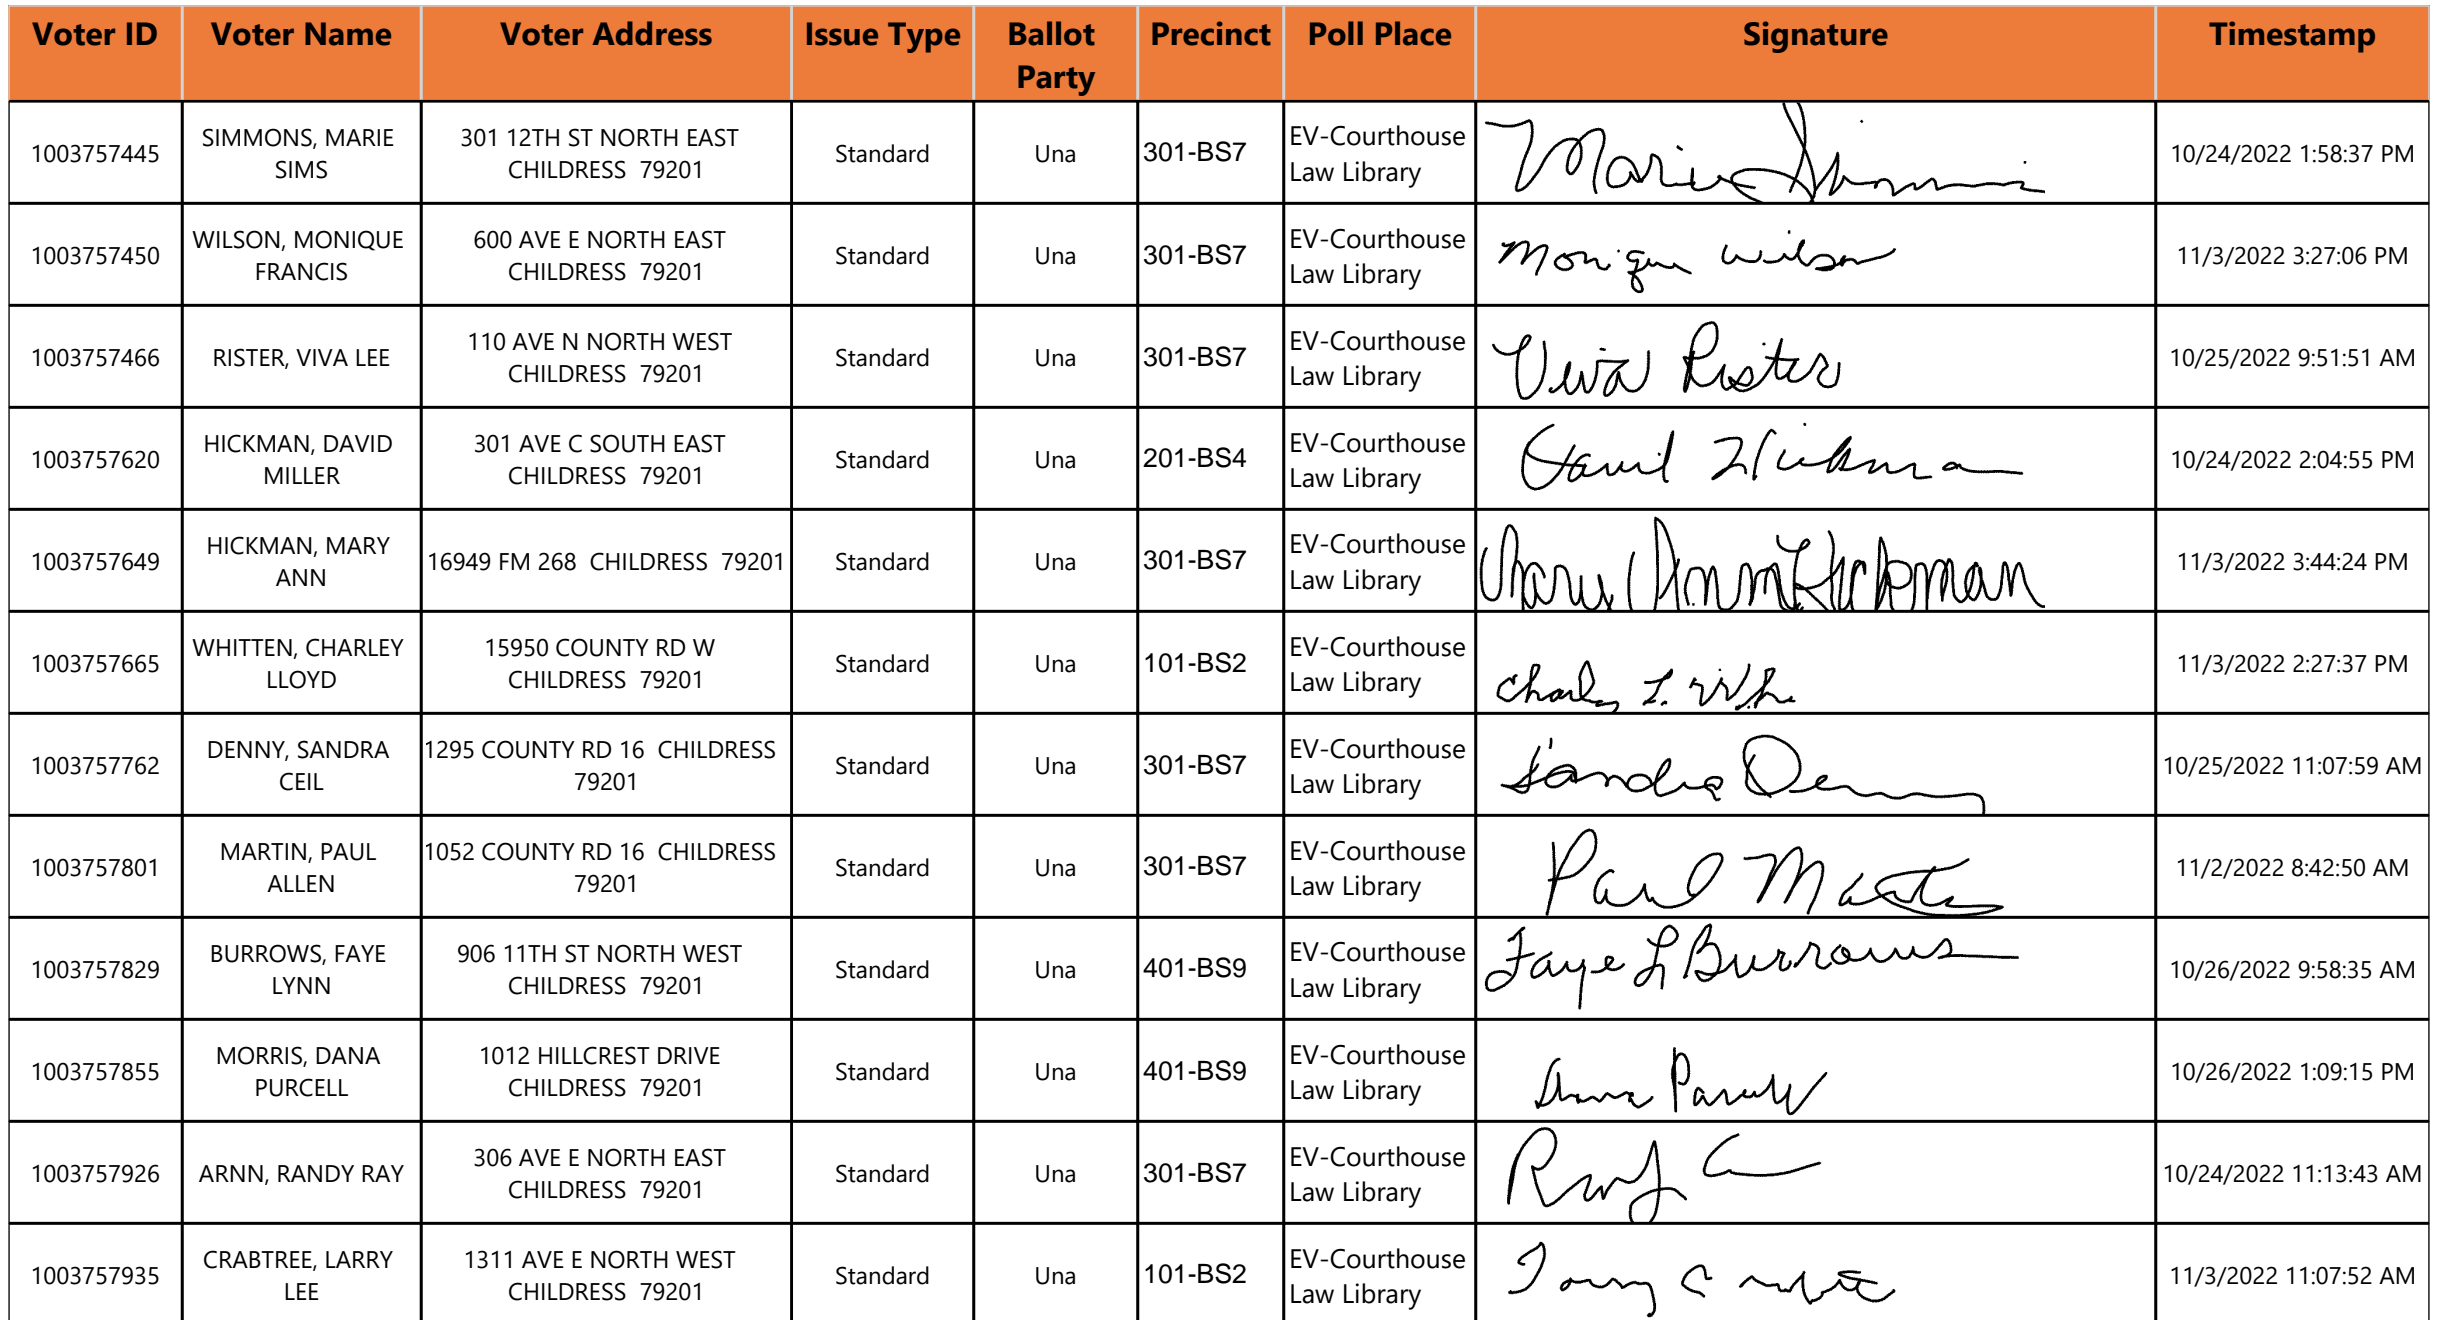 Voter ID Voter Name Voter Address Issue Type Ballot Party Precinct Poll Place Signature Timestamp
1003757445 SIMMONS, MARIE SIMS 301 12TH ST NORTH EAST CHILDRESS 79201 Standard Una 301-BS7 EV-Courthouse Law Library Marie Simmons 10/24/2022 1:58:37 PM
1003757450 WILSON, MONIQUE FRANCIS 600 AVE E NORTH EAST CHILDRESS 79201 Standard Una 301-BS7 EV-Courthouse Law Library Monique Wilson 11/3/2022 3:27:06 PM
1003757466 RISTER, VIVA LEE 110 AVE N NORTH WEST CHILDRESS 79201 Standard Una 301-BS7 EV-Courthouse Law Library Viva Rister 10/25/2022 9:51:51 AM
1003757620 HICKMAN, DAVID MILLER 301 AVE C SOUTH EAST CHILDRESS 79201 Standard Una 201-BS4 EV-Courthouse Law Library David Hickman 10/24/2022 2:04:55 PM
1003757649 HICKMAN, MARY ANN 16949 FM 268 CHILDRESS 79201 Standard Una 301-BS7 EV-Courthouse Law Library Mary Ann Hickman 11/3/2022 3:44:24 PM
1003757665 WHITTEN, CHARLEY LLOYD 15950 COUNTY RD W CHILDRESS 79201 Standard Una 101-BS2 EV-Courthouse Law Library Charley L. 11/3/2022 2:27:37 PM
1003757762 DENNY, SANDRA CEIL 1295 COUNTY RD 16 CHILDRESS 79201 Standard Una 301-BS7 EV-Courthouse Law Library Sandra Denny 10/25/2022 11:07:59 AM
1003757801 MARTIN, PAUL ALLEN 1052 COUNTY RD 16 CHILDRESS 79201 Standard Una 301-BS7 EV-Courthouse Law Library Paul Martin 11/2/2022 8:42:50 AM
1003757829 BURROWS, FAYE LYNN 906 11TH ST NORTH WEST CHILDRESS 79201 Standard Una 401-BS9 EV-Courthouse Law Library Faye L Burrows 10/26/2022 9:58:35 AM
1003757855 MORRIS, DANA PURCELL 1012 HILLCREST DRIVE CHILDRESS 79201 Standard Una 401-BS9 EV-Courthouse Law Library Dana 10/26/2022 1:09:15 PM
1003757926 ARNN, RANDY RAY 306 AVE E NORTH EAST CHILDRESS 79201 Standard Una 301-BS7 EV-Courthouse Law Library 10/24/2022 11:13:43 AM
1003757935 CRABTREE, LARRY LEE 1311 AVE E NORTH WEST CHILDRESS 79201 Standard Una 101-BS2 EV-Courthouse Law Library 11/3/2022 11:07:52 AM